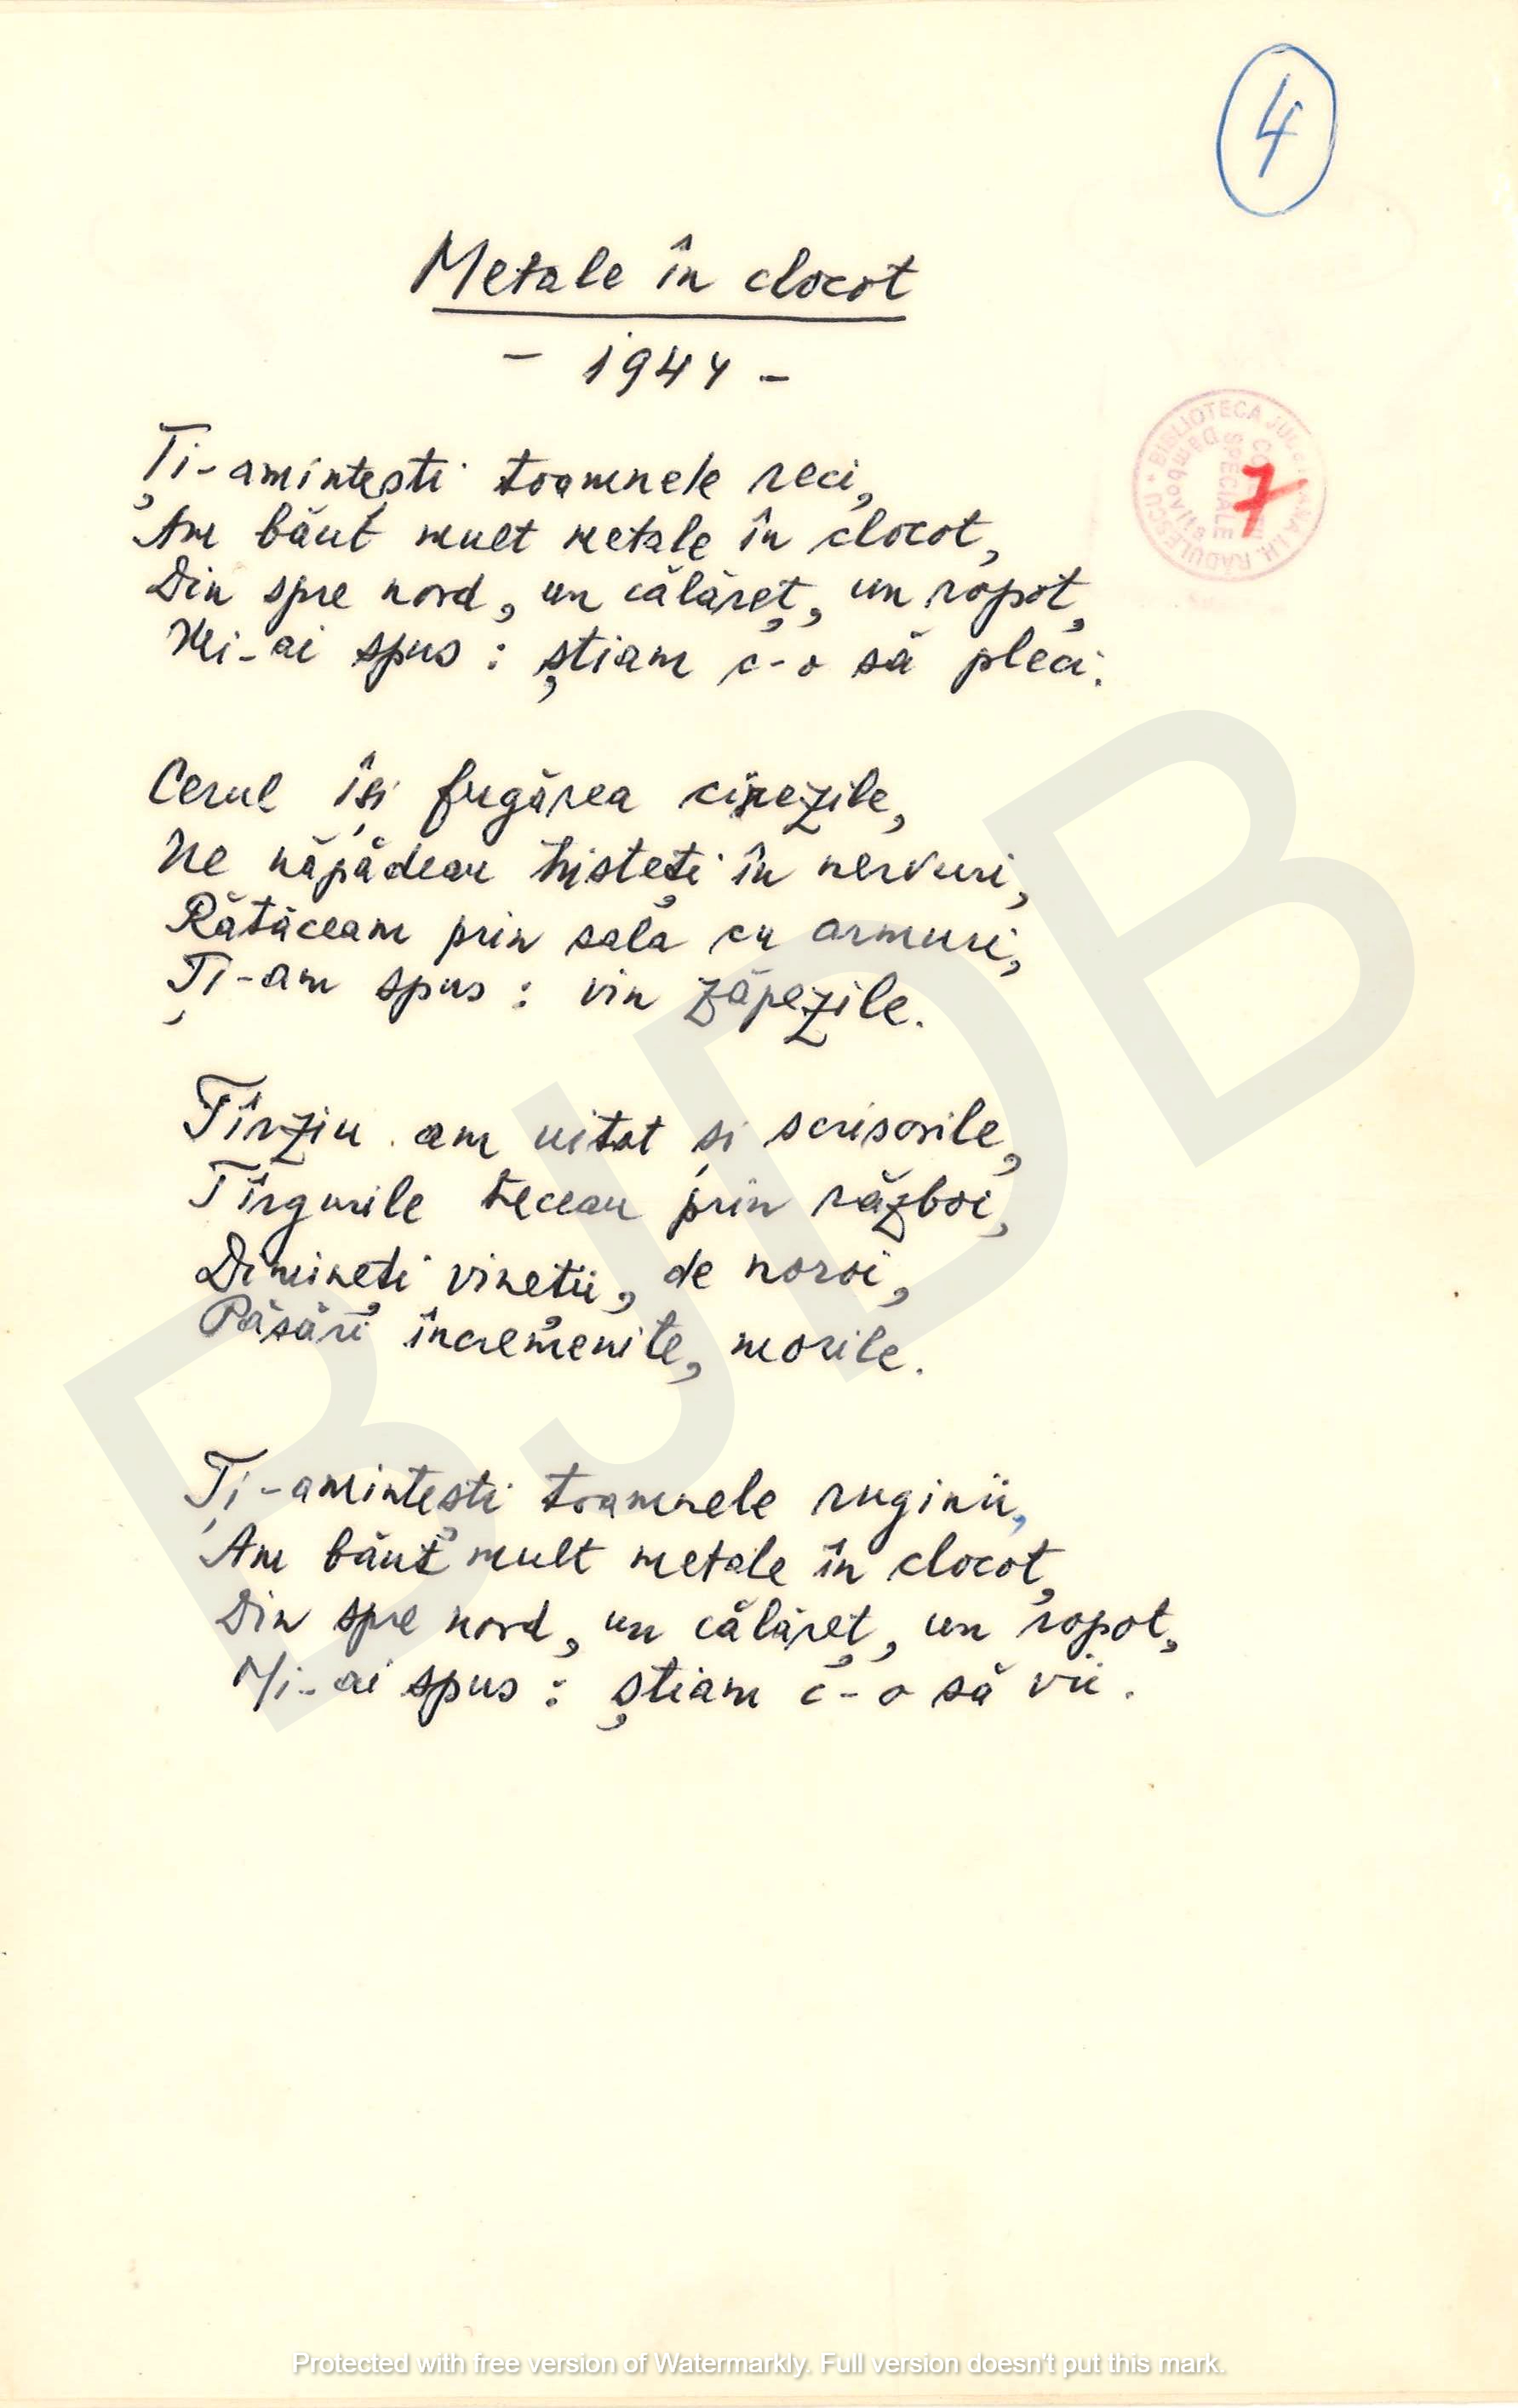 4
Metale în clocot
- 1944 -
Ți-amintești toamnele reci,
Am băut mult metale în clocot,
Din spre nord, un călăreț, un ropot,
Mi-ai spus : știam c-o să pleci.
Cerul își fugărea cirezile,
Ne năpădeau tristeți în nervuri,
Rătăceam prin sala cu armuri,
Ți-am spus : vin zăpezile.
Tîrziu am uitat și scrisorile,
Tîrgurile treceau prin război,
Dimineți vineții, de noroi,
Păsări încremenite, morile.
Ți-amintești toamnele ruginii,
Am băut mult metale în clocot,
Din spre nord, un călăreț, un ropot,
Mi-ai spus : știam c-o să vii.
BIBLIOTECA I.H. RĂDULESCU
Dâmbovița
SPECIALE
7
BJDB
Protected with free version of Watermarkly. Full version doesn't put this mark.